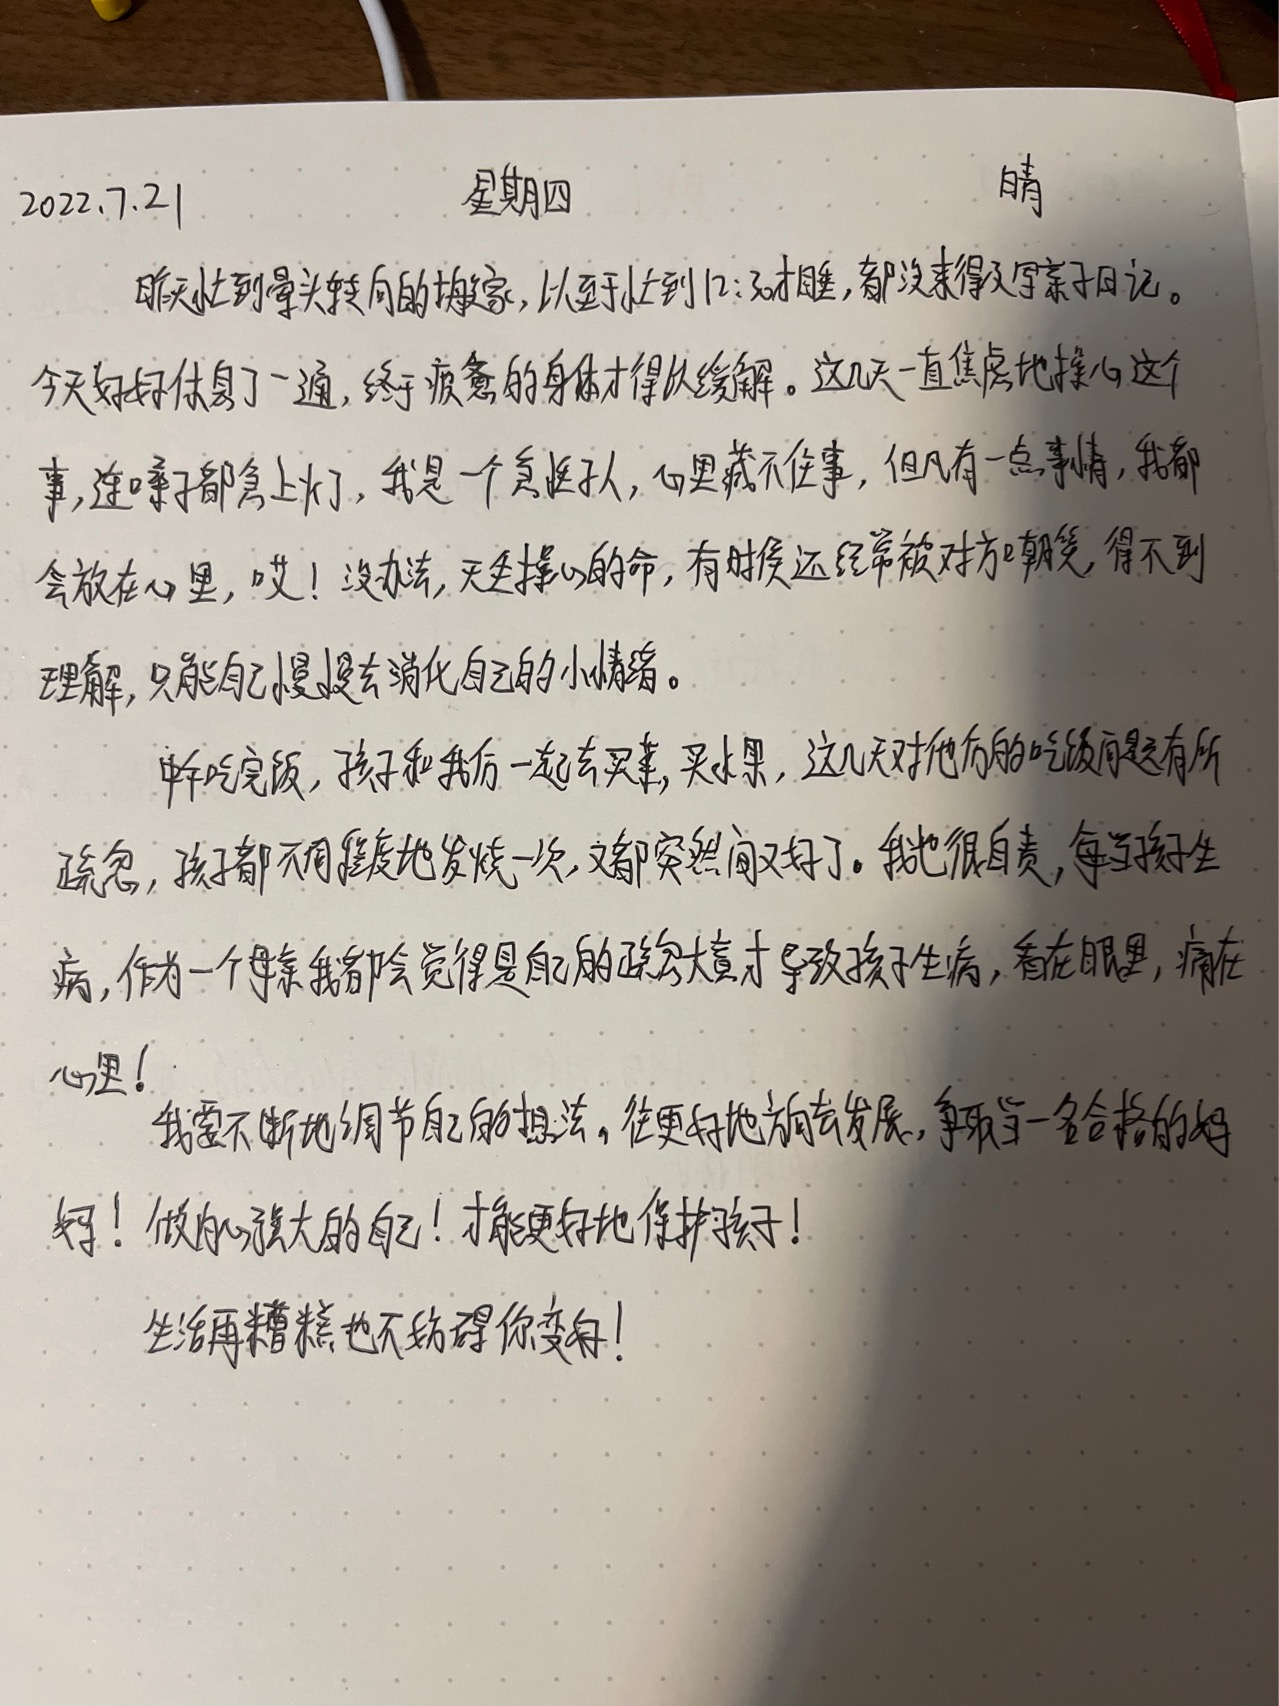 2022.7.21 星期四 晴
昨天忙到晕头转向的搬家，以至于忙到12:30才睡，都没来得及写亲子日记。
今天好好休息了一通，终于疲惫的身体才得以缓解。这几天一直焦虑地操心这个
事，连嗓子都急上火了，我是一个急性子人，心里藏不住事，但凡有一点事情，我都
会放在心里，哎！没办法，天生操心的命，有时候还经常被对方嘲笑，得不到
理解，只能自己慢慢去消化自己的小情绪。
中午吃完饭，孩子和我们一起去买菜，买水果，这几天对他们的吃饭问题有所
疏忽，孩子都不同程度地发烧一次，又都突然间又好了。我也很自责，每当孩子生
病，作为一个母亲我都会觉得是自己的疏忽大意才导致孩子生病，看在眼里，痛在
心里！
我要不断地调节自己的想法，往更好地方向去发展，争取当一名合格的妈
妈！做内心强大的自己！才能更好地保护孩子！
生活再糟糕也不妨碍你变好！